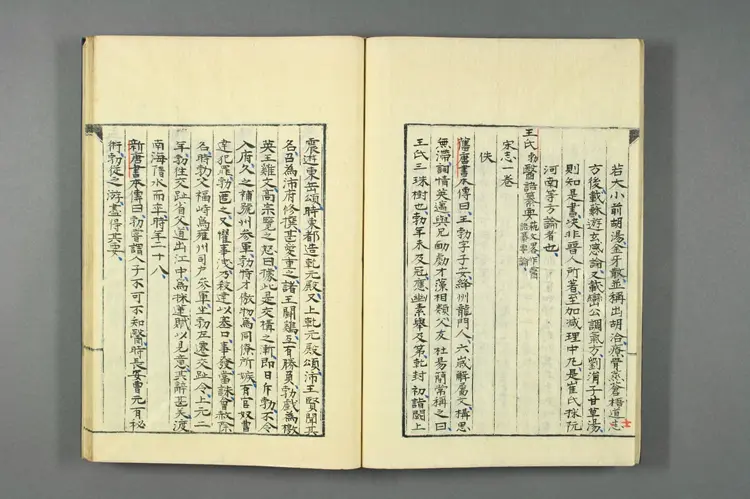 若大小前胡湯金牙散並稱出胡洽療骨蒸蒼梧道士
方後載蘇遊玄感論又載巒公調氣方劉涓子甘草湯
則知是書决非晉人所著至加減理中丸是崔氏採阮
河南等方論者也
王氏勃醫語纂要藝文畧作醫語纂要論
宋志一卷
佚
舊唐書本傳曰王勃字子安絳州龍門人六歲解屬文構思
無滯詞情英邁與兄勔勮才藻相類父友杜易簡常稱之曰
王氏三珠樹也勃年未及冠應幽素舉及第乾封初詣闕上
震遊東岳頌時東都造乾元殿又上乾元殿頌沛王賢聞其
名召為沛府修撰甚愛重之諸王鬪鷄互有勝負勃戲為檄
英王雞文高宗覽之怒曰據此是交構之漸即日斥勃不令
入府久之補虢州參軍勃恃才傲物為同僚所嫉有官奴曹
達犯罪勃匿之又懼事洩乃殺達以塞口事發當誅會赦除
名時勃父福畤為雍州司戶參軍坐勃左遷交趾令上元二
年勃往交趾省父道出江中為採蓮賦以見意其辭甚美渡
南海墮水而卒時年二十八
新唐書本傳曰勃嘗謂人子不可不知醫時長安曹元有秘
術勃從之游盡得其要